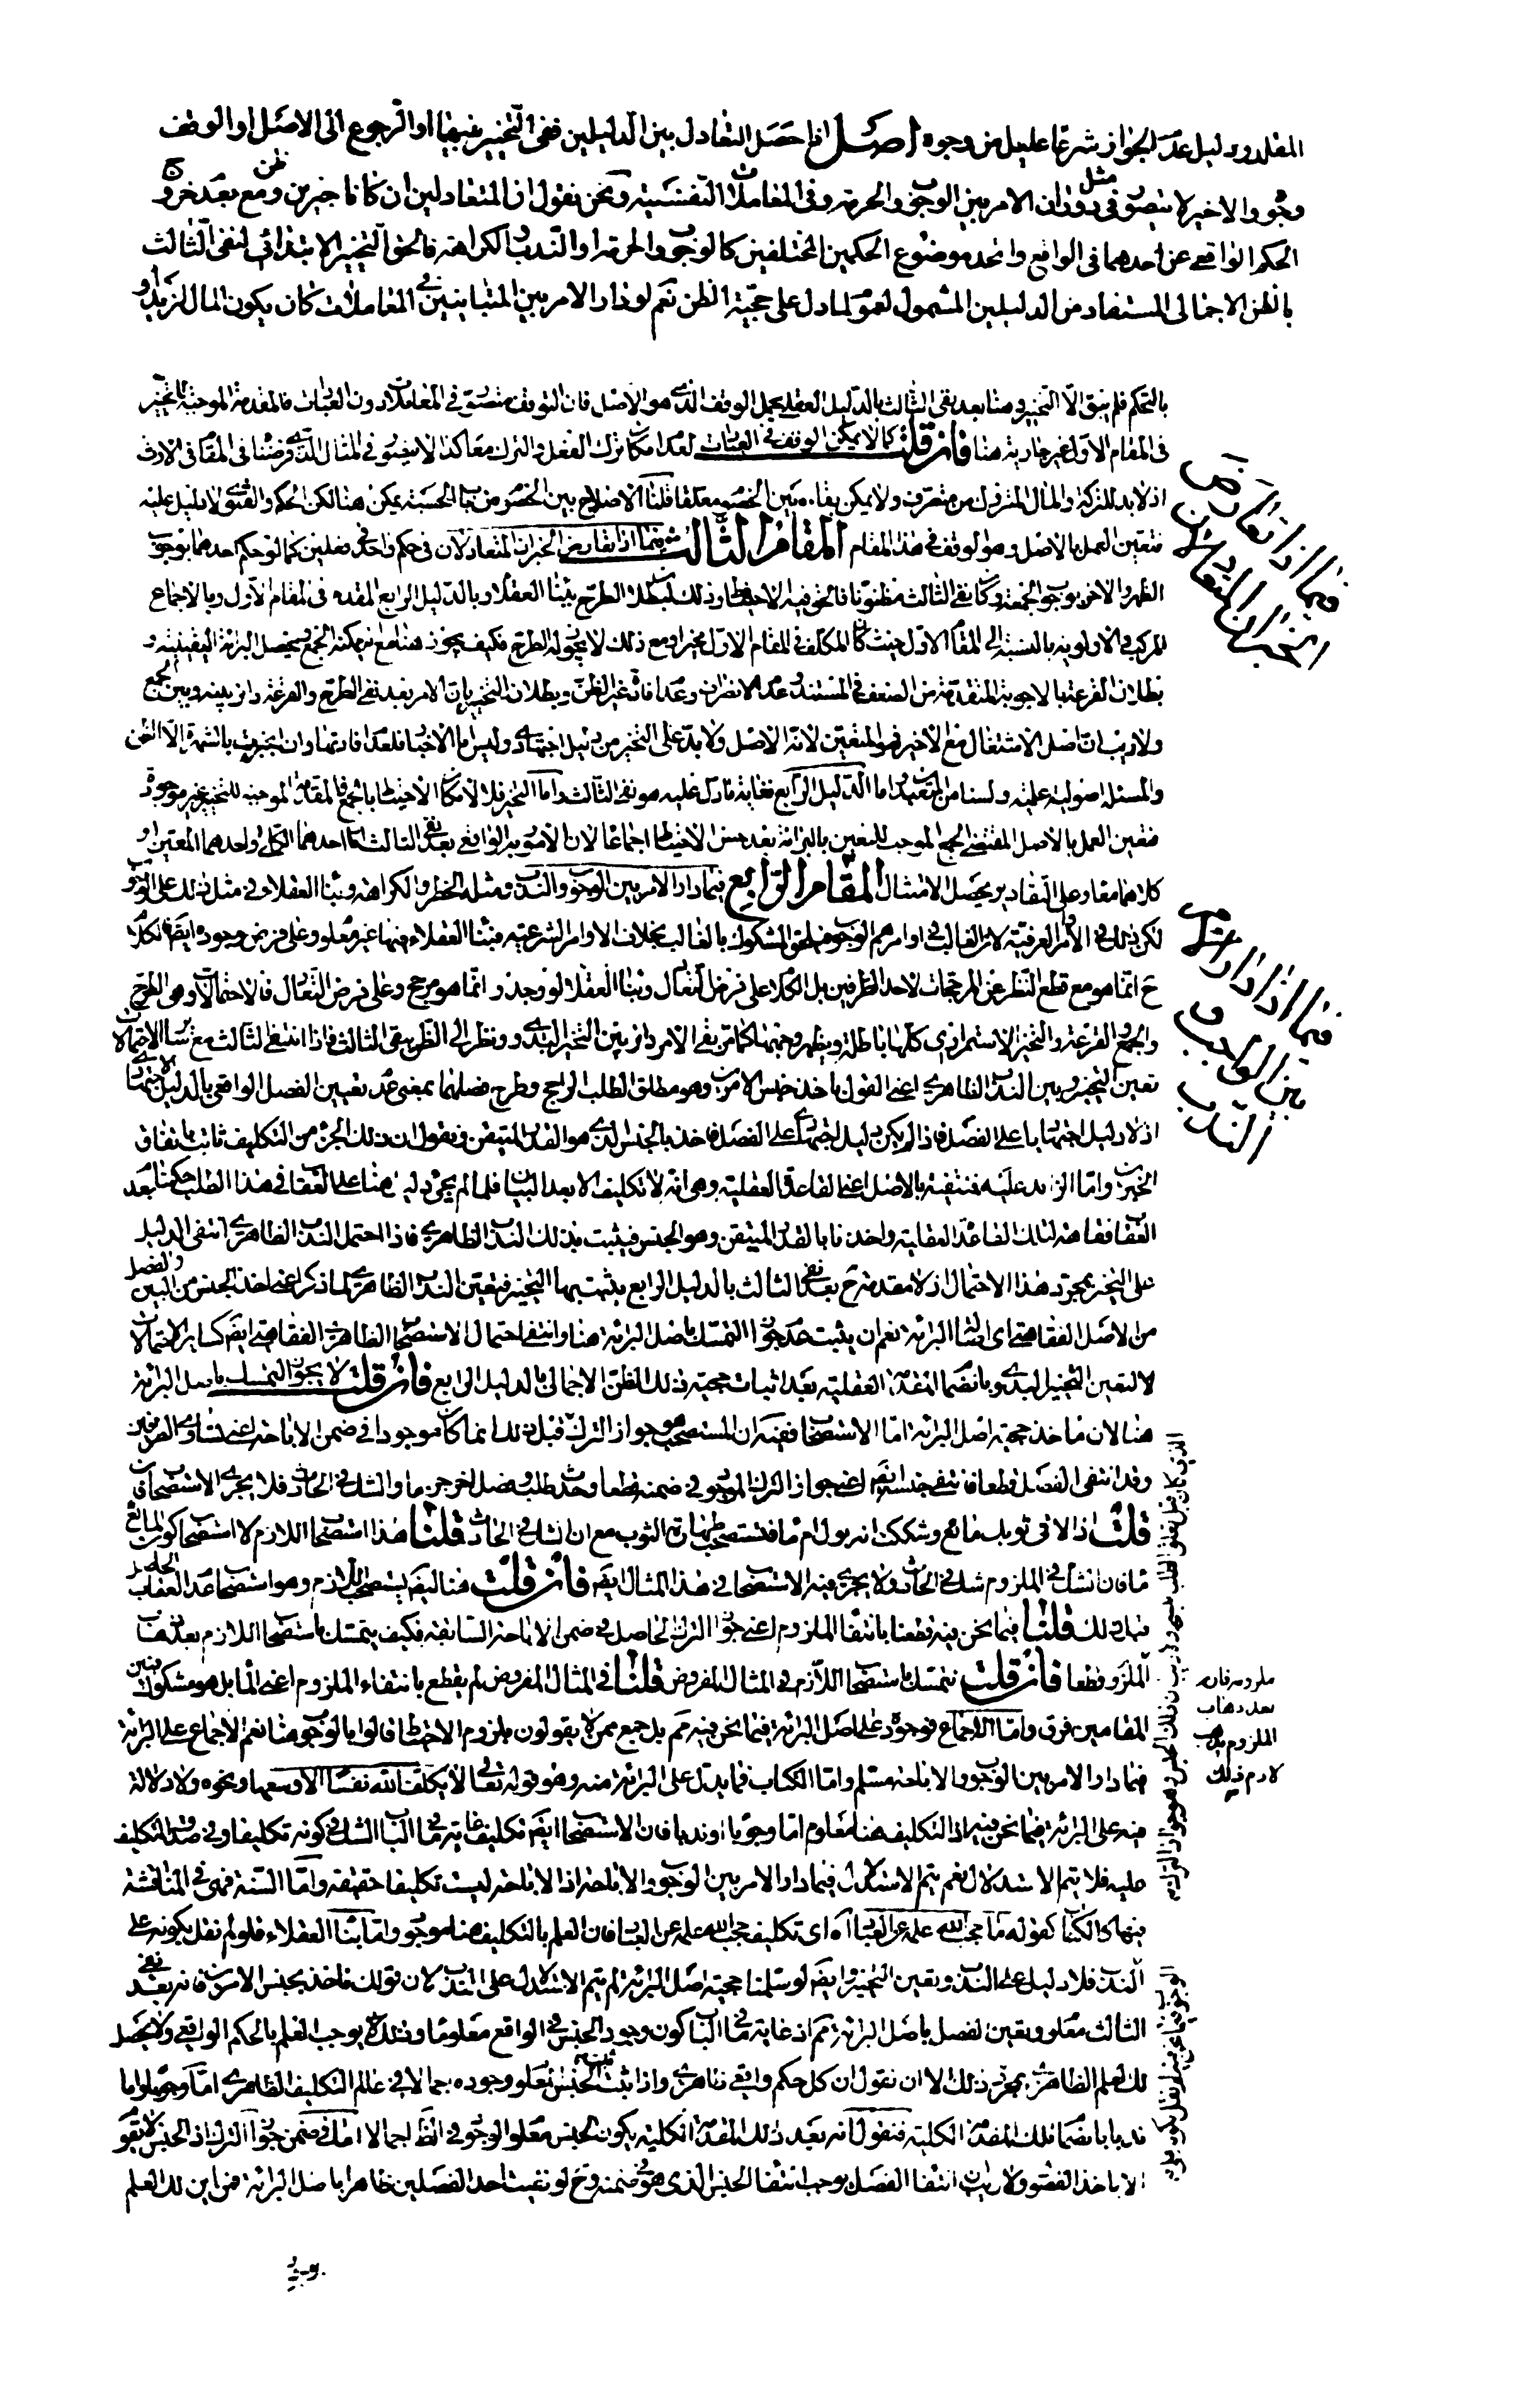 المقلد ودليل عدم الجواز شرعا عليل من وجوه اصل اذا حصل التعادل بين الدليلين ففى التخيير بينهما او الرجوع الى الاصل او الوقف
وجوه والاخير لا يتصور فى مثل دوران الامر بين الوجوب والحرمة وفى المعاملات ونحن نقول ان المتعادلين ان كانا خبرين ظن ومع بعد خروج
الحكم الواقعى عن احدهما فى الواقع واتحد موضوع الحكمين المختلفين كالوجوب والحرمة او الندب والكراهة فالحق التخيير الابتدائى لنفى الثالث
بالظن الاجمالى المستفاد من الدليلين المشمول لعموم ما دل على حجية الظن نعم لو دار الامر بين المتباينين فى المعاملات كان يكون المال لزيد او
بالتحكم فلم يبق الا التخيير و هنا بعد نفى الثالث بالدليل العقلى يحمل الوقف الذى هو الاصل فان التوقف متصور فى المعاملات دون العبادات فالمقدمة الموجبة للتخيير
فى المقام الاول غير جارية هنا فان قلت كما لا يمكن الوقف فى العبادات لعدم امكان ترك الفعل والترك معا كذا لا يتصور فى المثال الذى فرضنا فى المقام الارث
اذ لا بد للتركة والمال المتروك من متصرف ولا يمكن بقاؤه بين الخصوم معلقا قلنا الاصلاح بين الخصوم من باب الحسبة يمكن هنا لكن الحكم والفتوى لا دليل عليه
فتعين العمل بالاصل وهو الوقف فى هذا المقام المقام الثالث فيما اذا تعارض الخبران المتعادلان فى حكم واحد فى فعلين كما لو حكم احدهما بوجوب
الظهر والاخر بوجوب الجمعة وكان نفى الثالث مظنونا فالحق فيه الاحتياط وذلك لبطلان الطرح ببناء العقلاء وبالدليل الرابع المتقدم فى المقام الاول وبالاجماع
المركب والاولوية بالنسبة الى المقام الاول حيث كان المكلف فى المقام الاول مخيرا ومع ذلك لا يجوز له الطرح فكيف يجوز هنا مع انه يمكنه الجمع ويحصل البراءة اليقينية و
بطلان القرعة بالاجوبة المتقدمة من الضعف فى المستند وعدم الانصراف وعدم افادة غير الظن وبطلان التخيير بان الامر بعد نفى الطرح والقرعة دائر بينه وبين الجمع
ولا ريب ان اصل الاشتغال مع الاخير فهو المتعين لانه الاصل ولا بد على التخيير من دليل اجتهادى وليس اما الاخبار فلعدم افادتها وان انجبرت بالشهرة الا الظن
والمسئلة اصولية علمية ولسنا من المتعبدين بها واما الدليل الرابع فغاية ما دل عليه هو نفى الثالث واما التخيير فلا لامكان الاحتياط بالجمع فالمقدمة الموجبة للتخيير غير موجودة
فتعين العمل بالاصل المقتضى للجمع الموجب لليقين بالبراءة بعد حسن الاحتياط اجماعا لان المامور به الواقعى بعد نفى الثالث اما احدهما الكلى او احدهما المعين او
كلاهما معا وعلى التقادير يحصل الامتثال المقام الرابع فيما دار الامر بين الوجوب والندب ومثله الحظر والكراهة وبناء العقلاء فى مثل ذلك على الوجوب
لكن ذلك فى الاوامر العرفية لان الغالب فى اوامرهم الوجوب فيلحق المشكوك بالغالب بخلاف الاوامر الشرعية فبناء العقلاء فيها غير معلوم وعلى فرض وجوده ايضا فالكلام
ح انما هو مع قطع النظر عن المرجحات لاحد الطرفين بل الكلام على فرض التعادل وبناء العقلاء لو وجد و انما هو مرجح وعلى فرض التعادل فالاحتمالات وهى الطرح
والجمع والقرعة والتخيير الاستمرارى كلها باطلة ويظهر وجهها كما مر بقى الامر دائر بين التخيير البدوى ونظر الى الظن بنفى الثالث فاذا انتفى الثالث مع سائر الاحتمالات
تعين التخيير وبين الندب الظاهرى اعنى القول باخذ جنس الامرين وهو مطلق الطلب الراجح وطرح فصلهما بمعنى عدم تعيين الفصل الواقعى بالدليل الاجتهادى
اذ لا دليل اجتهاديا على الفصل فاذا لم يكن دليل اجتهادى على الفصل فاخذ بالجنس الذى هو القدر المتيقن فيقول ان ذلك الجزء من التكليف ثابت باتفاق
الخبرين واما الزائد عليه فننفيه بالاصل اعنى القاعدة العقلية وهى انه لا تكليف الا بعد البيان فلما لم يجئ دليل هنا على العقاب فى هذا الطلب حكمنا بعدم
العقاب فقاهة لتلك القاعدة العقلية واخذنا بالقدر المتيقن وهو الجنس فيثبت بذلك الندب الظاهرى فاذا احتمل الندب الظاهرى انتفى الدليل
على التخيير بمجرد هذا الاحتمال اذ لا مقدمة ح بعد نفى الثالث بالدليل الرابع يثبت بها التخيير فتعين الندب الظاهرى لما ذكر اعنى اخذ الجنس من البين والفصل
من الاصل الفقاهتى اى اصالة البراءة نعم ان يثبت عدم جواز التمسك باصل البراءة هنا وانتفى احتمال الاستصحاب الظاهرى الفقاهتى ايضا كسائر الاحتمالات
لا لتعين التخيير البدوى وبانضمام المقدمة العقلية بعد اثبات حجية ذلك الظن الاجمالى بالدليل الرابع فان قلت لا يجوز التمسك باصل البراءة
هنا لان ماخذ حجية اصل البراءة اما الاستصحاب ففيه ان المستصحب هو جواز الترك قبل ذلك انما كان موجودا فى ضمن الاباحة اعنى تساوى الطرفين
وقد انتفى الفصل قطعا فانتفى جنسه ايضا اعنى جواز الترك الموجود فى ضمنه قطعا وحدث طلب وفصل اخر جزما والشك فى الحادث فلا يجرى الاستصحاب فان
قلت اذا لاقى ثوبك مائع وشككت انه بول ام ماء فتستصحب طهارة الثوب مع ان الشك فى الحادث قلنا هذا استصحاب اللازم لا استصحاب كون المائع
ماء فان الشك فى الملزوم شك فى الحادث ولا يجرى فيه الاستصحاب فى هذا المثال ايضا فان قلت هنا ايضا يستصحب اللازم وهو استصحاب عدم العقاب الحاصل
قبل ذلك قلنا فيما نحن فيه قطعنا بانتفاء الملزوم اعنى جواز الترك الحاصل فى ضمن الاباحة السابقة فكيف يتمسك باستصحاب اللازم بعد ذهاب
الملزوم قطعا فان قلت يتمسك باستصحاب اللازم فى المثال المفروض قلنا فى المثال المفروض لم يقطع بانتفاء الملزوم اعنى الماء بل هو مشكوك فبين
المقامين فرق واما الاجماع فوجوده على اصل البراءة فيما نحن فيه مم بل جمع ممن لا يقولون بلزوم الاحتياط قالوا بالوجوب هنا نعم الاجماع على البراءة
فيما دار الامر بين الوجوب والاباحة مسلم واما الكتاب فما يدل على البراءة منه وهو قوله تعالى لا يكلف الله نفسا الا وسعها ونحوه ولا دلالة
فيه على البراءة فيما نحن فيه اذ التكليف هنا معلوم اما وجوبا او ندبا فان الاستصحاب ايضا تكليف غاية ما فى الباب الشك فى كونه تكليفا وفى صدق التكليف
عليه فلا يتم الاستدلال نعم يتم الاستدلال فيما دار الامر بين الوجوب والاباحة اذ الاباحة ليست تكليفا حقيقة واما السنة فهى فى المناقشة
فيها كالكتاب كقوله ما حجب الله علمه عن العباد اه اى تكليف حجب الله علمه عن العباد فان العلم بالتكليف هنا موجود واما بناء العقلاء فلو لم نقل بكونه على
الندب فلا دليل على الندب وتعين التخيير وايضا لو سلمنا حجية اصل البراءة لم يتم الاستدلال على الندب لان قولك فاخذ بجنس الامرين فانه بعد نفى
الثالث معلوم وتعين الفصل باصل البراءة مم اذ غاية ما فى الباب كون وجود الجنس فى الواقع معلوما وذلك لا يوجب العلم بالحكم الواقعى ولا يحصل
لك العلم الظاهرى بمجرد ذلك الا ان نقول ان كل حكم واقعى ظاهرى واذا ثبت الجنس فيه فمعلوم وجوده اجمالا فى عالم التكليف الظاهرى اما وجوبا واما
ندبا بانضمام تلك المقدمة الكلية فنقول انه بعد ذلك المقدمة الكلية يكون الجنس معلوم الوجود فى الظاهر اجمالا اما فى ضمن جواز الترك اذ الجنس لا يتقوم
الا باخذ الفصول ولا ريب ان انتفاء الفصل يوجب انتفاء الجنس الذى هو فى ضمنه وح لو نفيت احد الفصلين ظاهرا باصل البراءة فمن اين لك العلم
فيما اذا تعارض
الخبران المتعادلان
فيما اذا دار الامر
بين الوجوب و
الندب
ملزومه فان
بعد ذهاب
الملزوم يذهب
لازم ذلك